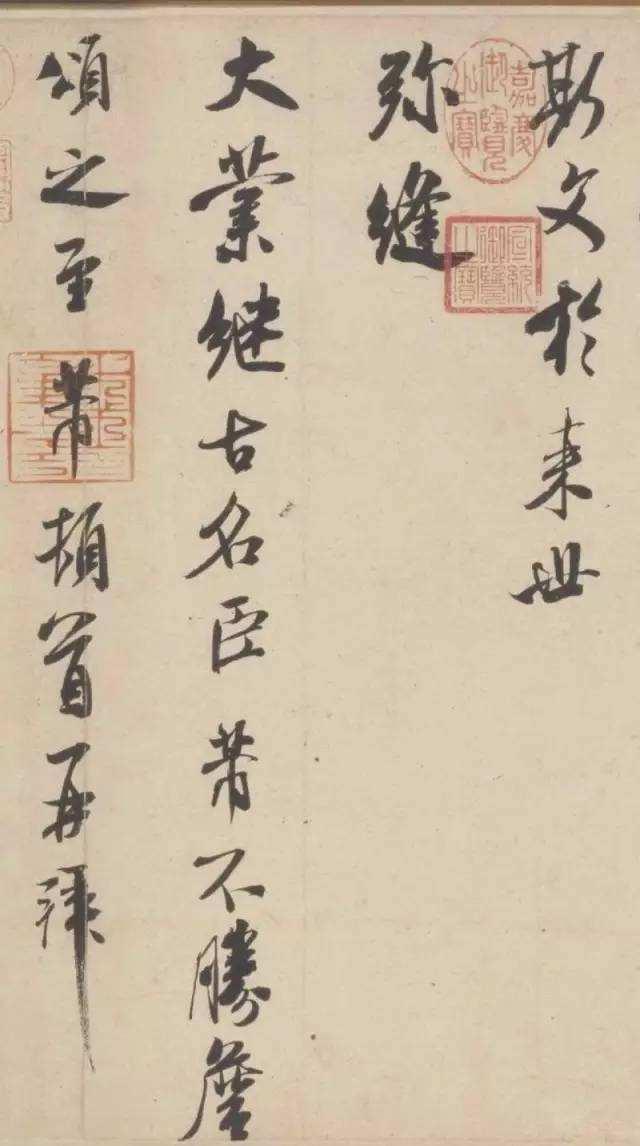 斯文於来世
嘉慶御覽之寶
宣統御覽之寶
弥縫
大業継古名臣芾不勝詹
頌之至芾頓首再拜